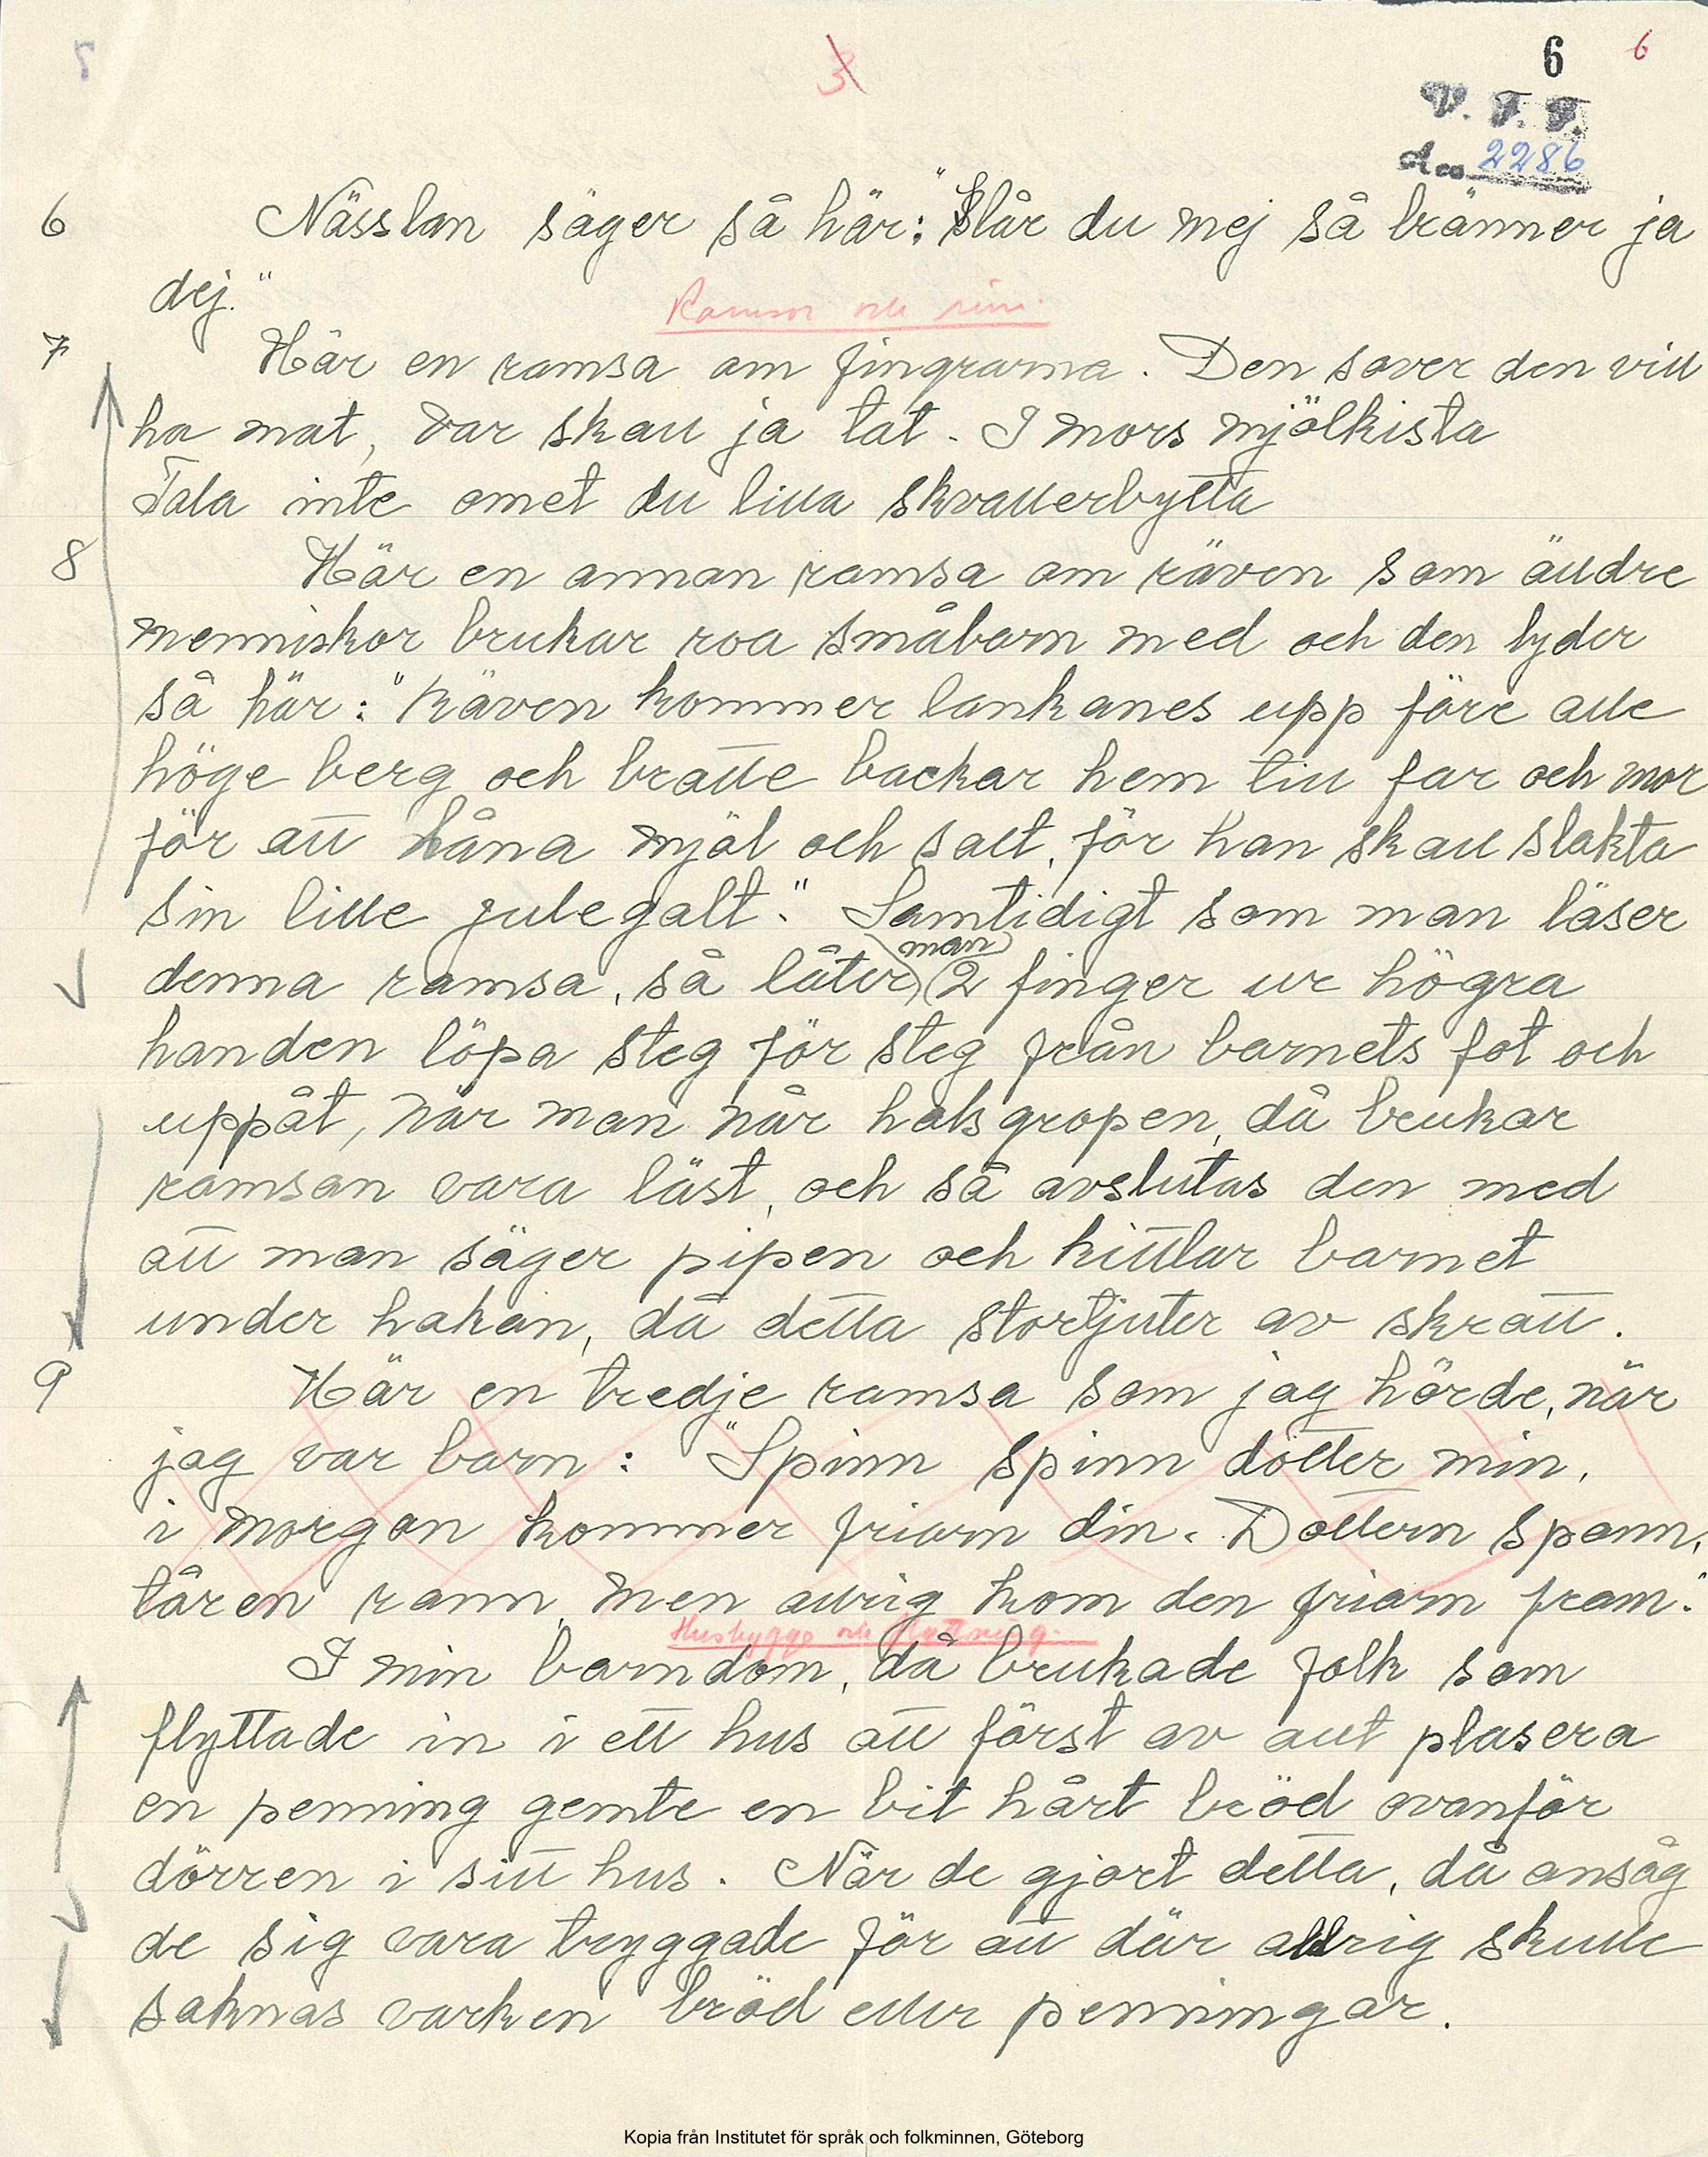 3
6 6
V. F. F.
acc 2286
6 Nässlan säger så här: "Slår du mej så bränner ja
dej."
Ramsor och rim.
7 Här en ramsa om fingrarna. Den sover den vill
ha mat, var skall ja tat. I mors mjölkista
Tala inte omet du lilla skvallerbytta
8 Här en annan ramsa om räven som älldre
menniskor brukar roa småbarn med och den lyder
så här: "Räven kommer lankanes upp före alle
höge berg och bratte backar hem till far och mor
för att låna mjöl och salt, för han skall slakta
sin lille julegalt." Samtidigt som man läser
denna ramsa, så låter man 2 finger ur högra
handen löpa steg för steg från barnets fot och
uppåt, när man når halsgropen, då brukar
ramsan vara läst, och så avslutas den med
att man säger pipen och kittlar barnet
under hakan, då detta stortjuter av skratt.
9 Här en tredje ramsa som jag hörde, när
jag var barn: "Spinn spinn dotter min,
i morgon kommer friarn din. Dottern spann,
tåren rann, men allrig kom den friarn fram."
Husbygge och flyttning.
I min barndom, då brukade folk som
flyttade in i ett hus att först av allt plasera
en penning gemte en bit hårt bröd ovanför
dörren i sitt hus. När de gjort detta, då ansåg
de sig vara tryggade för att där aldrig skulle
saknas varken bröd eller penningar.
Kopia från Institutet för språk och folkminnen, Göteborg